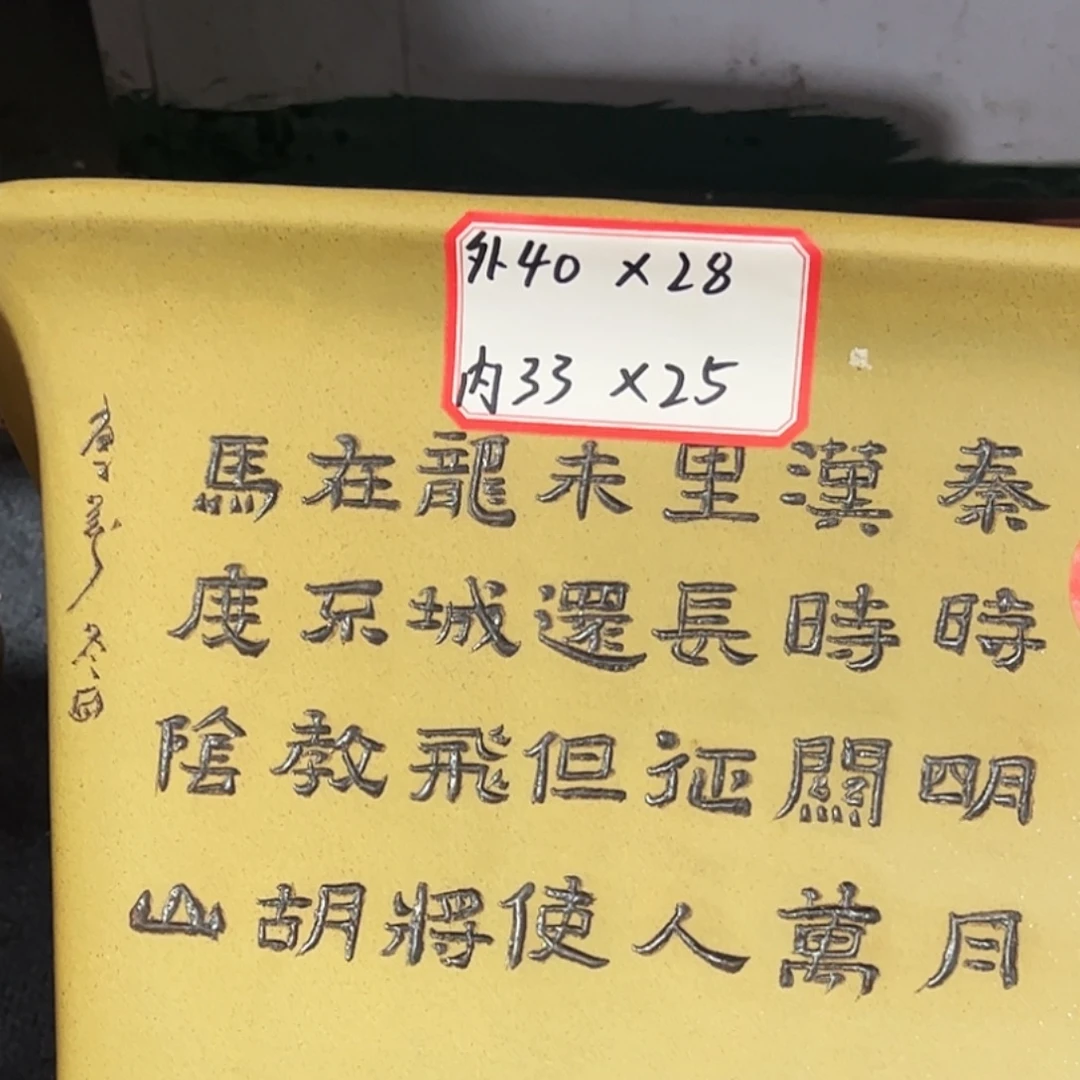 外40 ×28
内33 ×25
秦時明月
漢時關萬
里長征人
未還但使
龍城飛將
在不教胡
馬度陰山